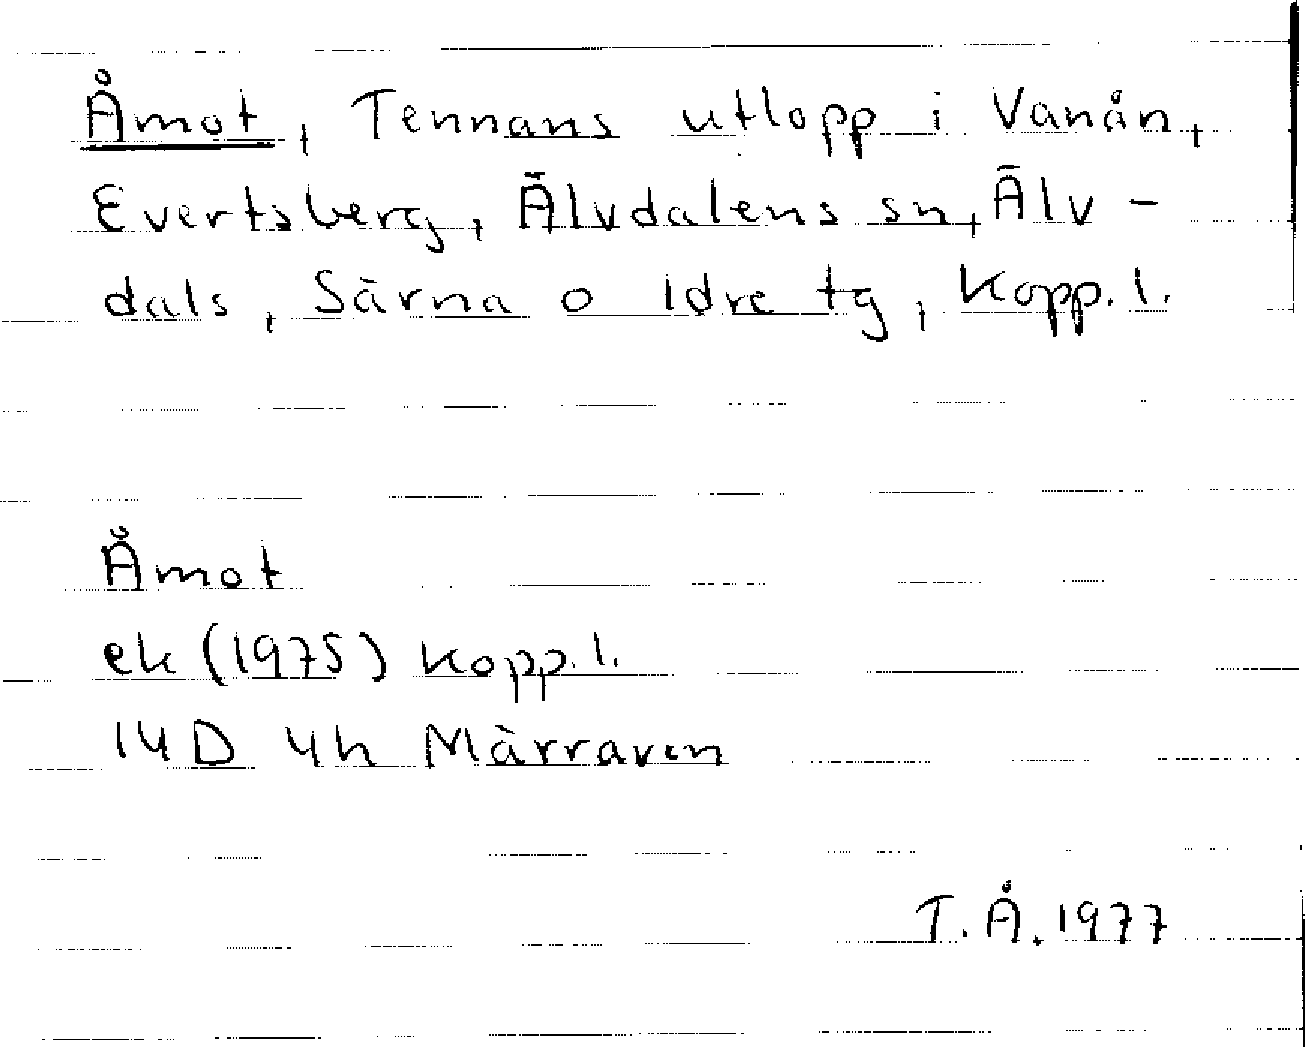 Åmot, Tennans utlopp i Vanån,
Evertsberg, Älvdalens sn, Älv-
dals, Särna o Idre tg, Kopp. l.
Åmot
ek (1975) Kopp. l.
14D 4h Märraven
T. Å. 1977